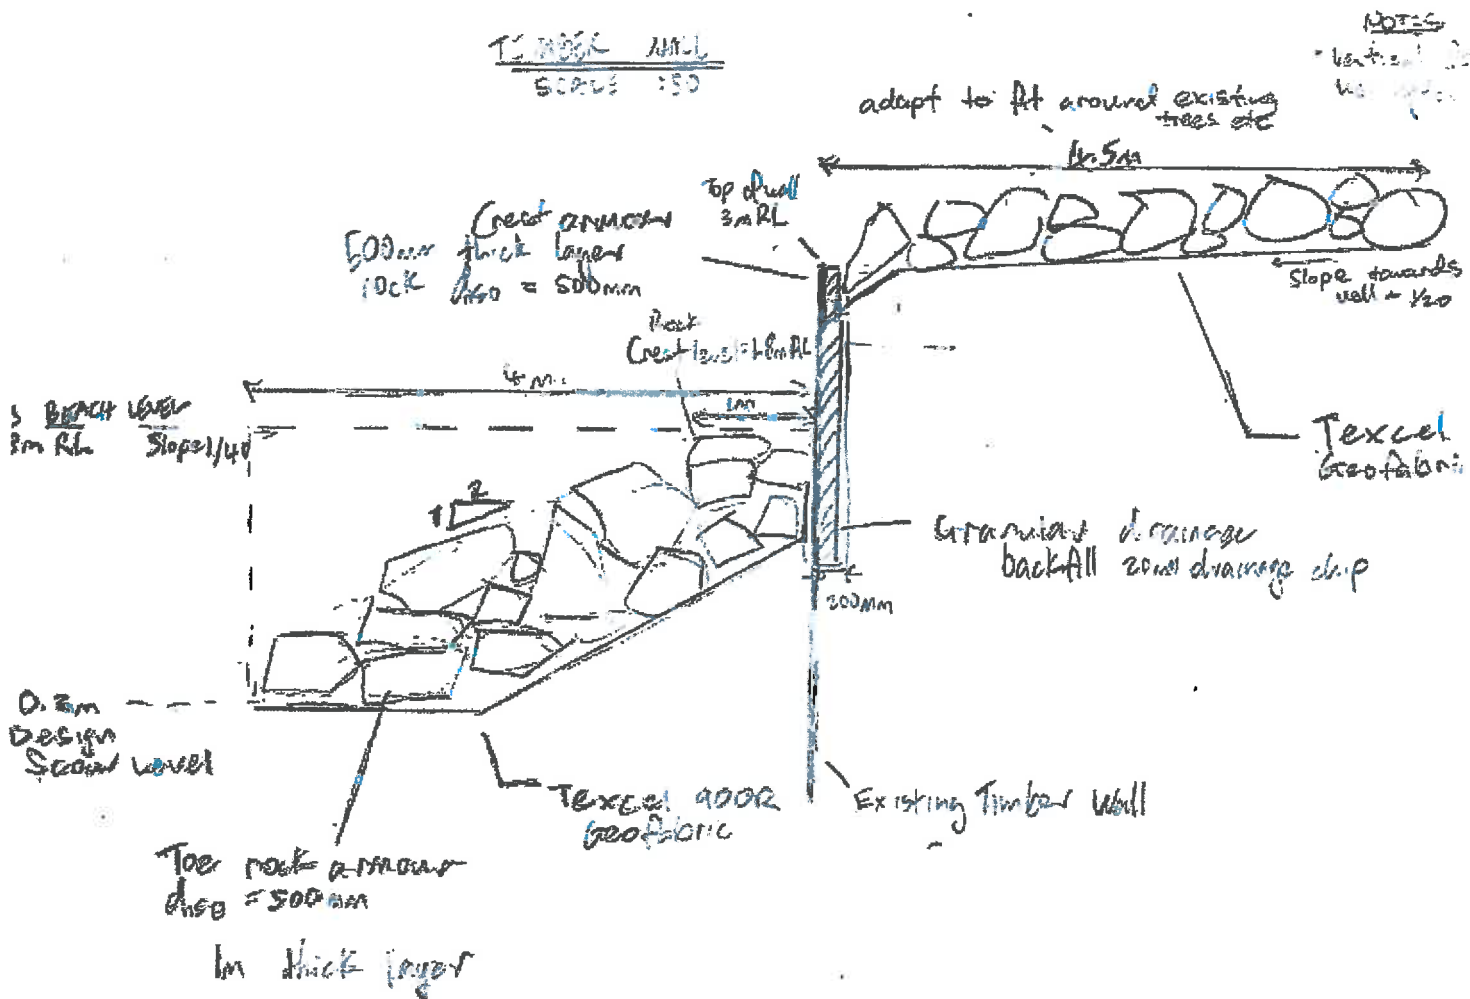 TIMBER WALL
SCALE :50
NOTES
adapt to fit around existing
trees etc
4.5m
Top of wall
3m RL
Crest armour
500mm thick layer
rock dn50 = 500mm
Slope towards
wall ~ 1/20
Rock
Crest level = 1.8m RL
4m
1m
BEACH LEVEL
8m RL Slope 1/40
Texcel
Geofabric
2
1
Granular drainage
backfill 20mm drainage chip
200mm
Design
Scour Level
Texcel 900R
Geofabric
Existing Timber Wall
Toe rock armour
dn50 = 500mm
1m thick layer